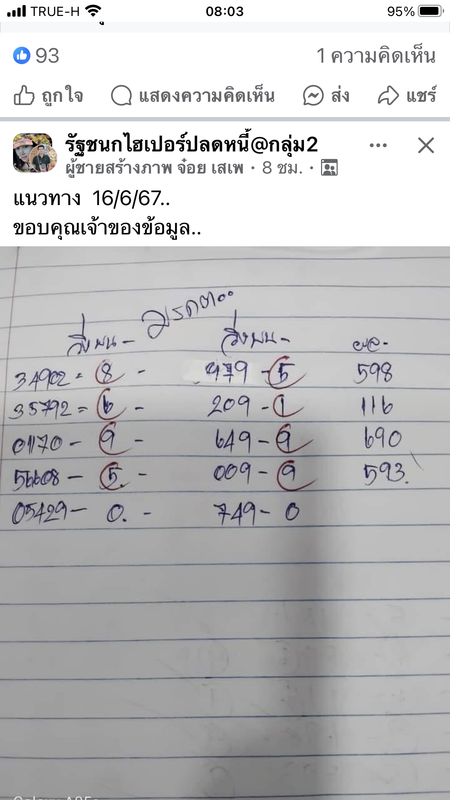 TRUE-H 08:03 95%
93 1 ความคิดเห็น
ถูกใจ แสดงความคิดเห็น ส่ง แชร์
รัฐชนกไฮเปอร์ปลดหนี้@กลุ่ม2
ผู้ชายสร้างภาพ จ๋อย เสเพ · 8 ชม. ·
แนวทาง 16/6/67..
ขอบคุณเจ้าของข้อมูล..
มรดต..
วิ่งบน - วิ่งบน - ผล.
34902 = 8 - 479 - 5 598
35792 = 6 - 209 - 1 116
01170 - 9 - 649 - 9 690
56608 - 5. - 009 - 9 593.
05429 - 0. - 749 - 0